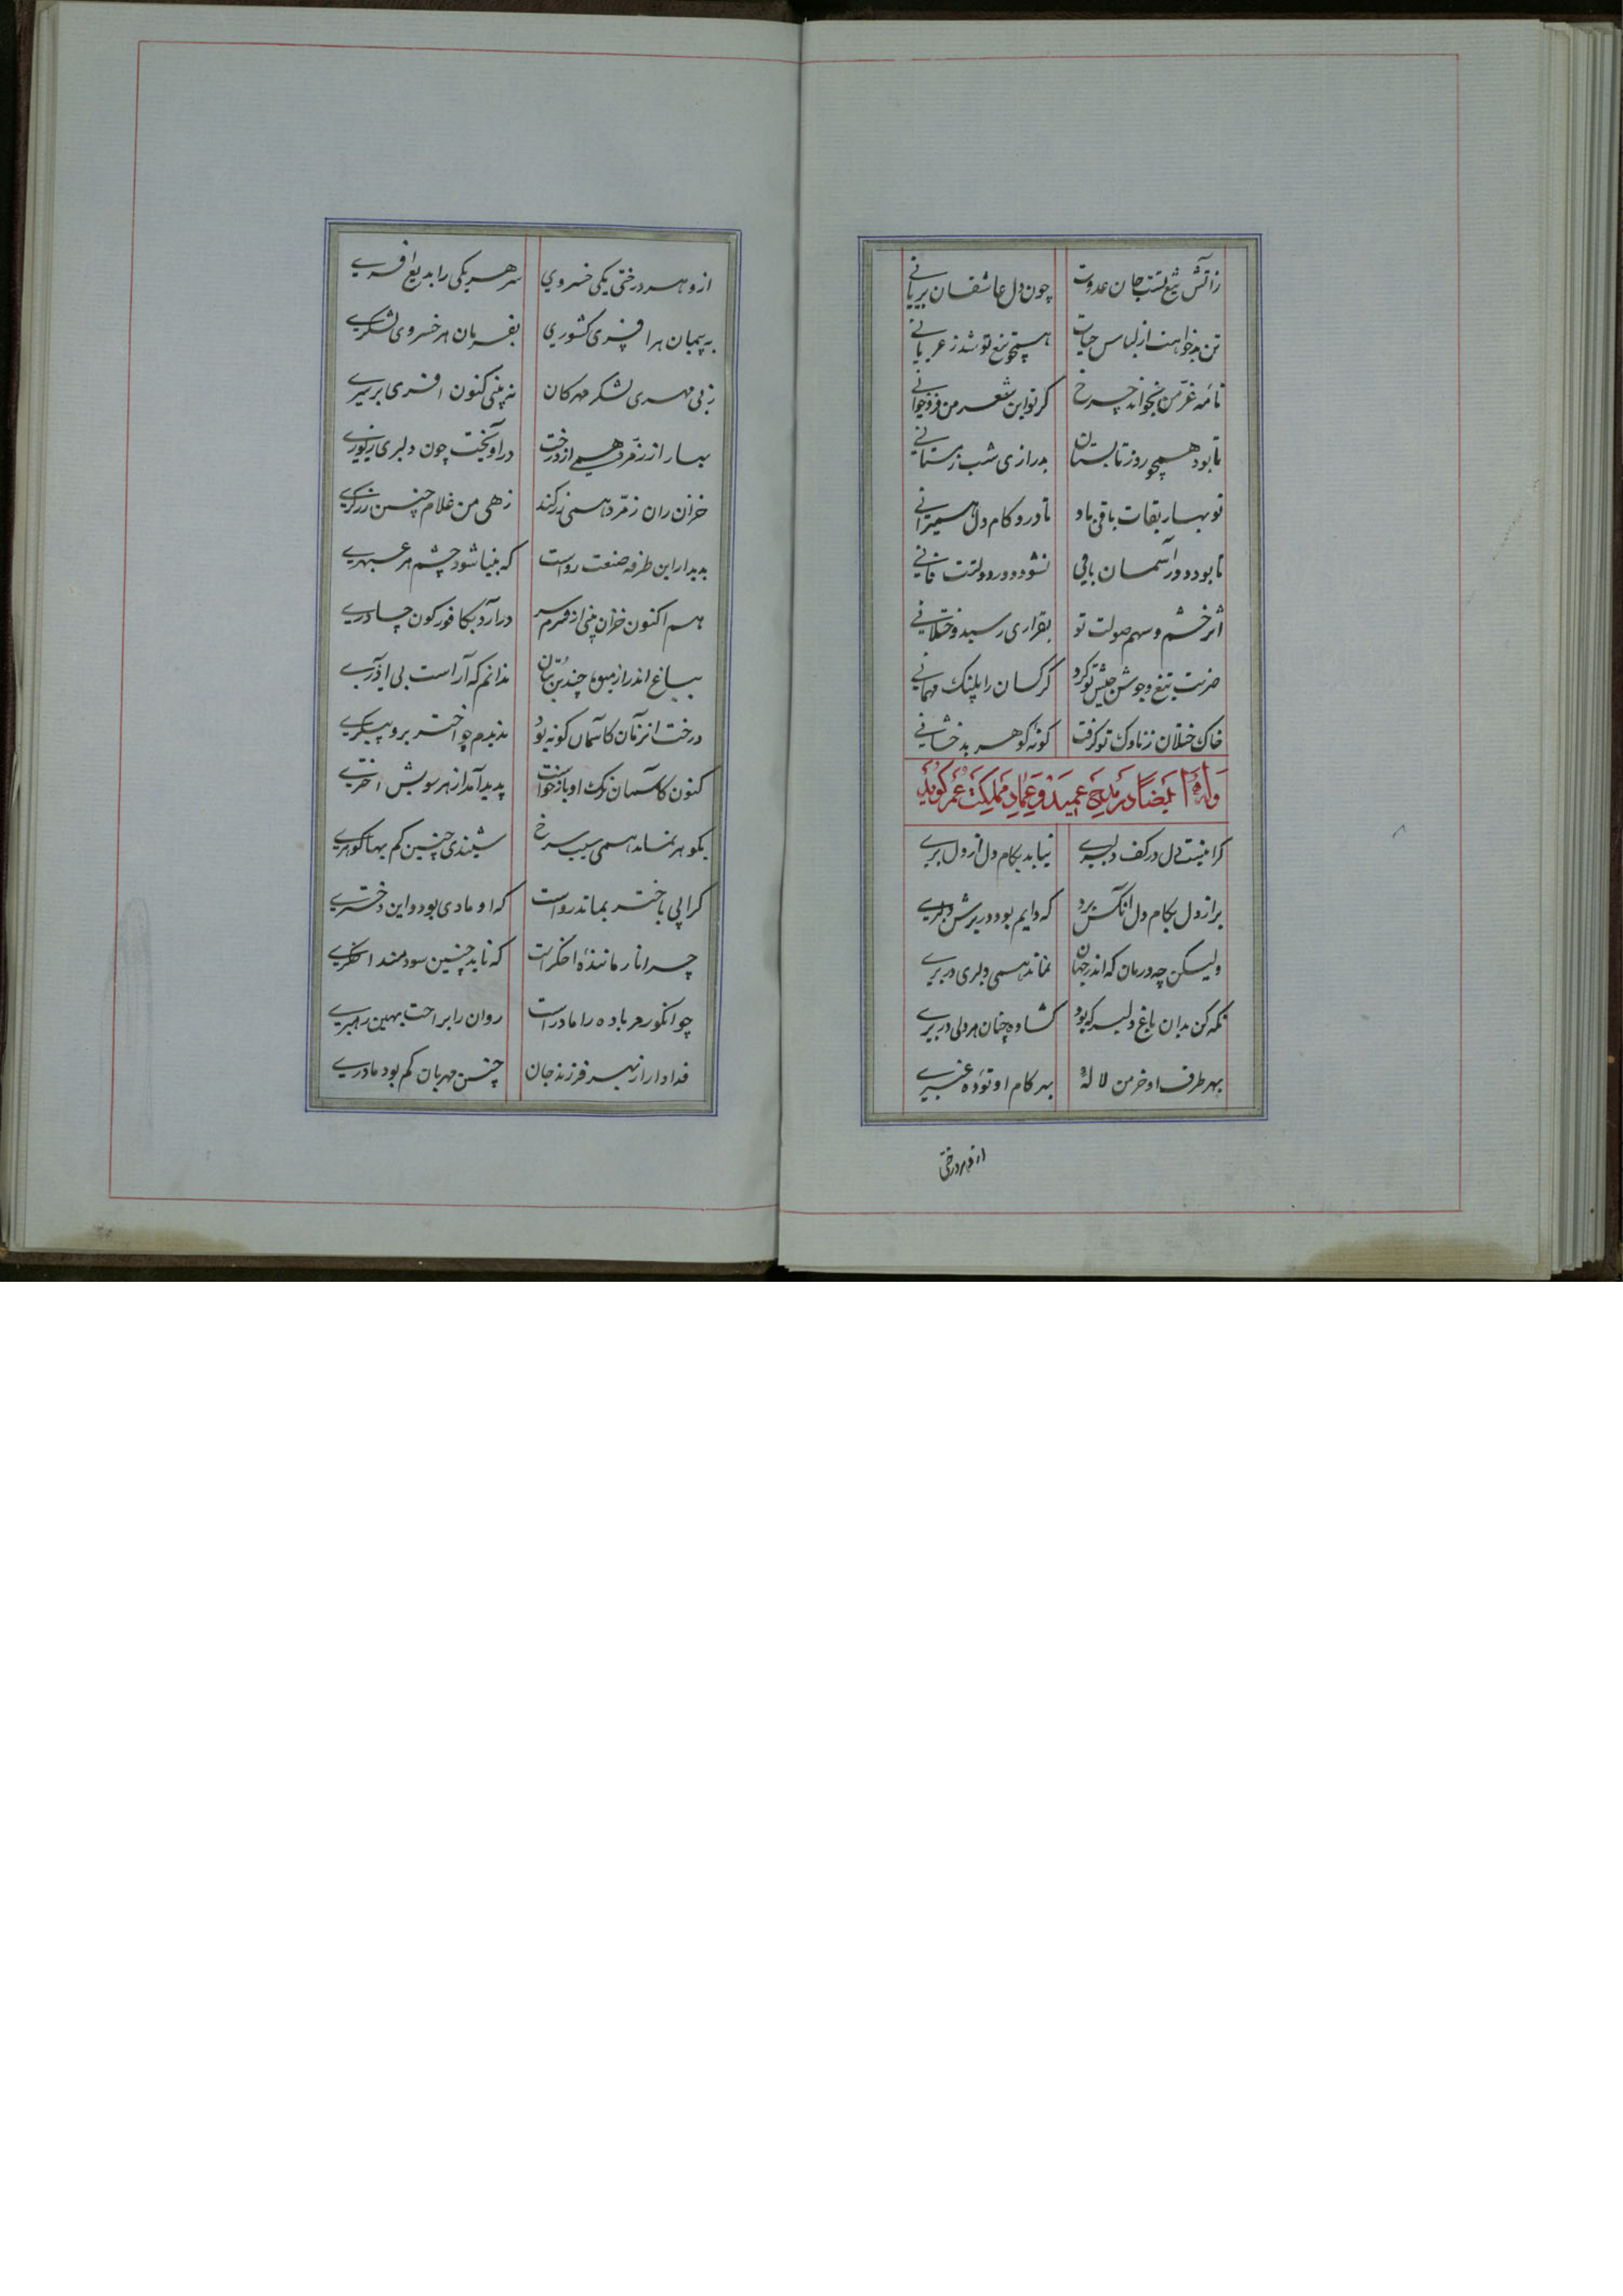 زآتش تیغ تست جان عدوت چون دل عاشقان بریانی
تن بدخواهت از لباس حیات همچو تیغ تو شد ز عریانی
نامه عزّ من نخواند چرخ گر تو این شعر من فروخوانی
تا بود همچو روز تابستان بدرازی شب زمستانی
نوبهار بقات باقی باد تا درو کام دل همی‌رانی
تا بود دور آسمان باقی نشود دور دولتت فانی
اثر خشم و سهم صولت تو بقراری رسید و ختلانی
ضربت تیغ و جوشن جیش تو کرد کرکسان را پلنک مهمانی
خاک ختلان ز ناوک تو گرفت گونه گوهر بدخشانی
وله ایضا در مدح عمید و عماد مملکت عمر گوید
کرا نیست دل در کف دلبری نیابد بکام دل از دل بری
بر از دل بکام دل آنکس برد که دایم بود در برش دلبری
ولیکن چه درمان که اندر جهان نماند همی دلبری در بری
نگه کن بدان باغ دلبر که بود گشاده چنان هر دلی در بری
بهر طرف او خرمن لاله بهر گام او توده عنبری
ازو هر درختی
ازو هر درختی یکی خسروی سر هر یکی را بدیع افسری
به پیمان هر افسری کشوری بفرمان هر خسروی لشکری
ز بی مهری لشکر مهرکان نه بینی کنون افسری بر سری
بهار از زمرّد همی از درخت در آویخت چون دلبری زیوری
خزان زان زمرّد همی زر کند زهی من غلام چنین زرگری
بدیدار این طرفه صنعت رواست که بینا شود چشم هر عبهری
هم اکنون خزان بینی از هر سر درآرد بکافورگون چادری
بباغ اندر از میوها چندین بتان ندانم که آراست بی آذری
درخت از زمان کاسمان گونه بود ندیدم چو اختر برو پیکری
کنون کاسمان رنگ او بازخواست پدید آمد از هر سویش اختری
بگوهر نماند همی سیب سرخ شنیدی چنین کم بها گوهری
گر آبی باختر بماند رواست که او مادی بود و این دختری
چرا نار ماننده اخگر است که ناید چنین سودمند اخگری
چو انگور مر باده را مادر است روان را براحت بهین رهبری
فدا دارد از بهر فرزند جان چنین مهربان کم بود مادری